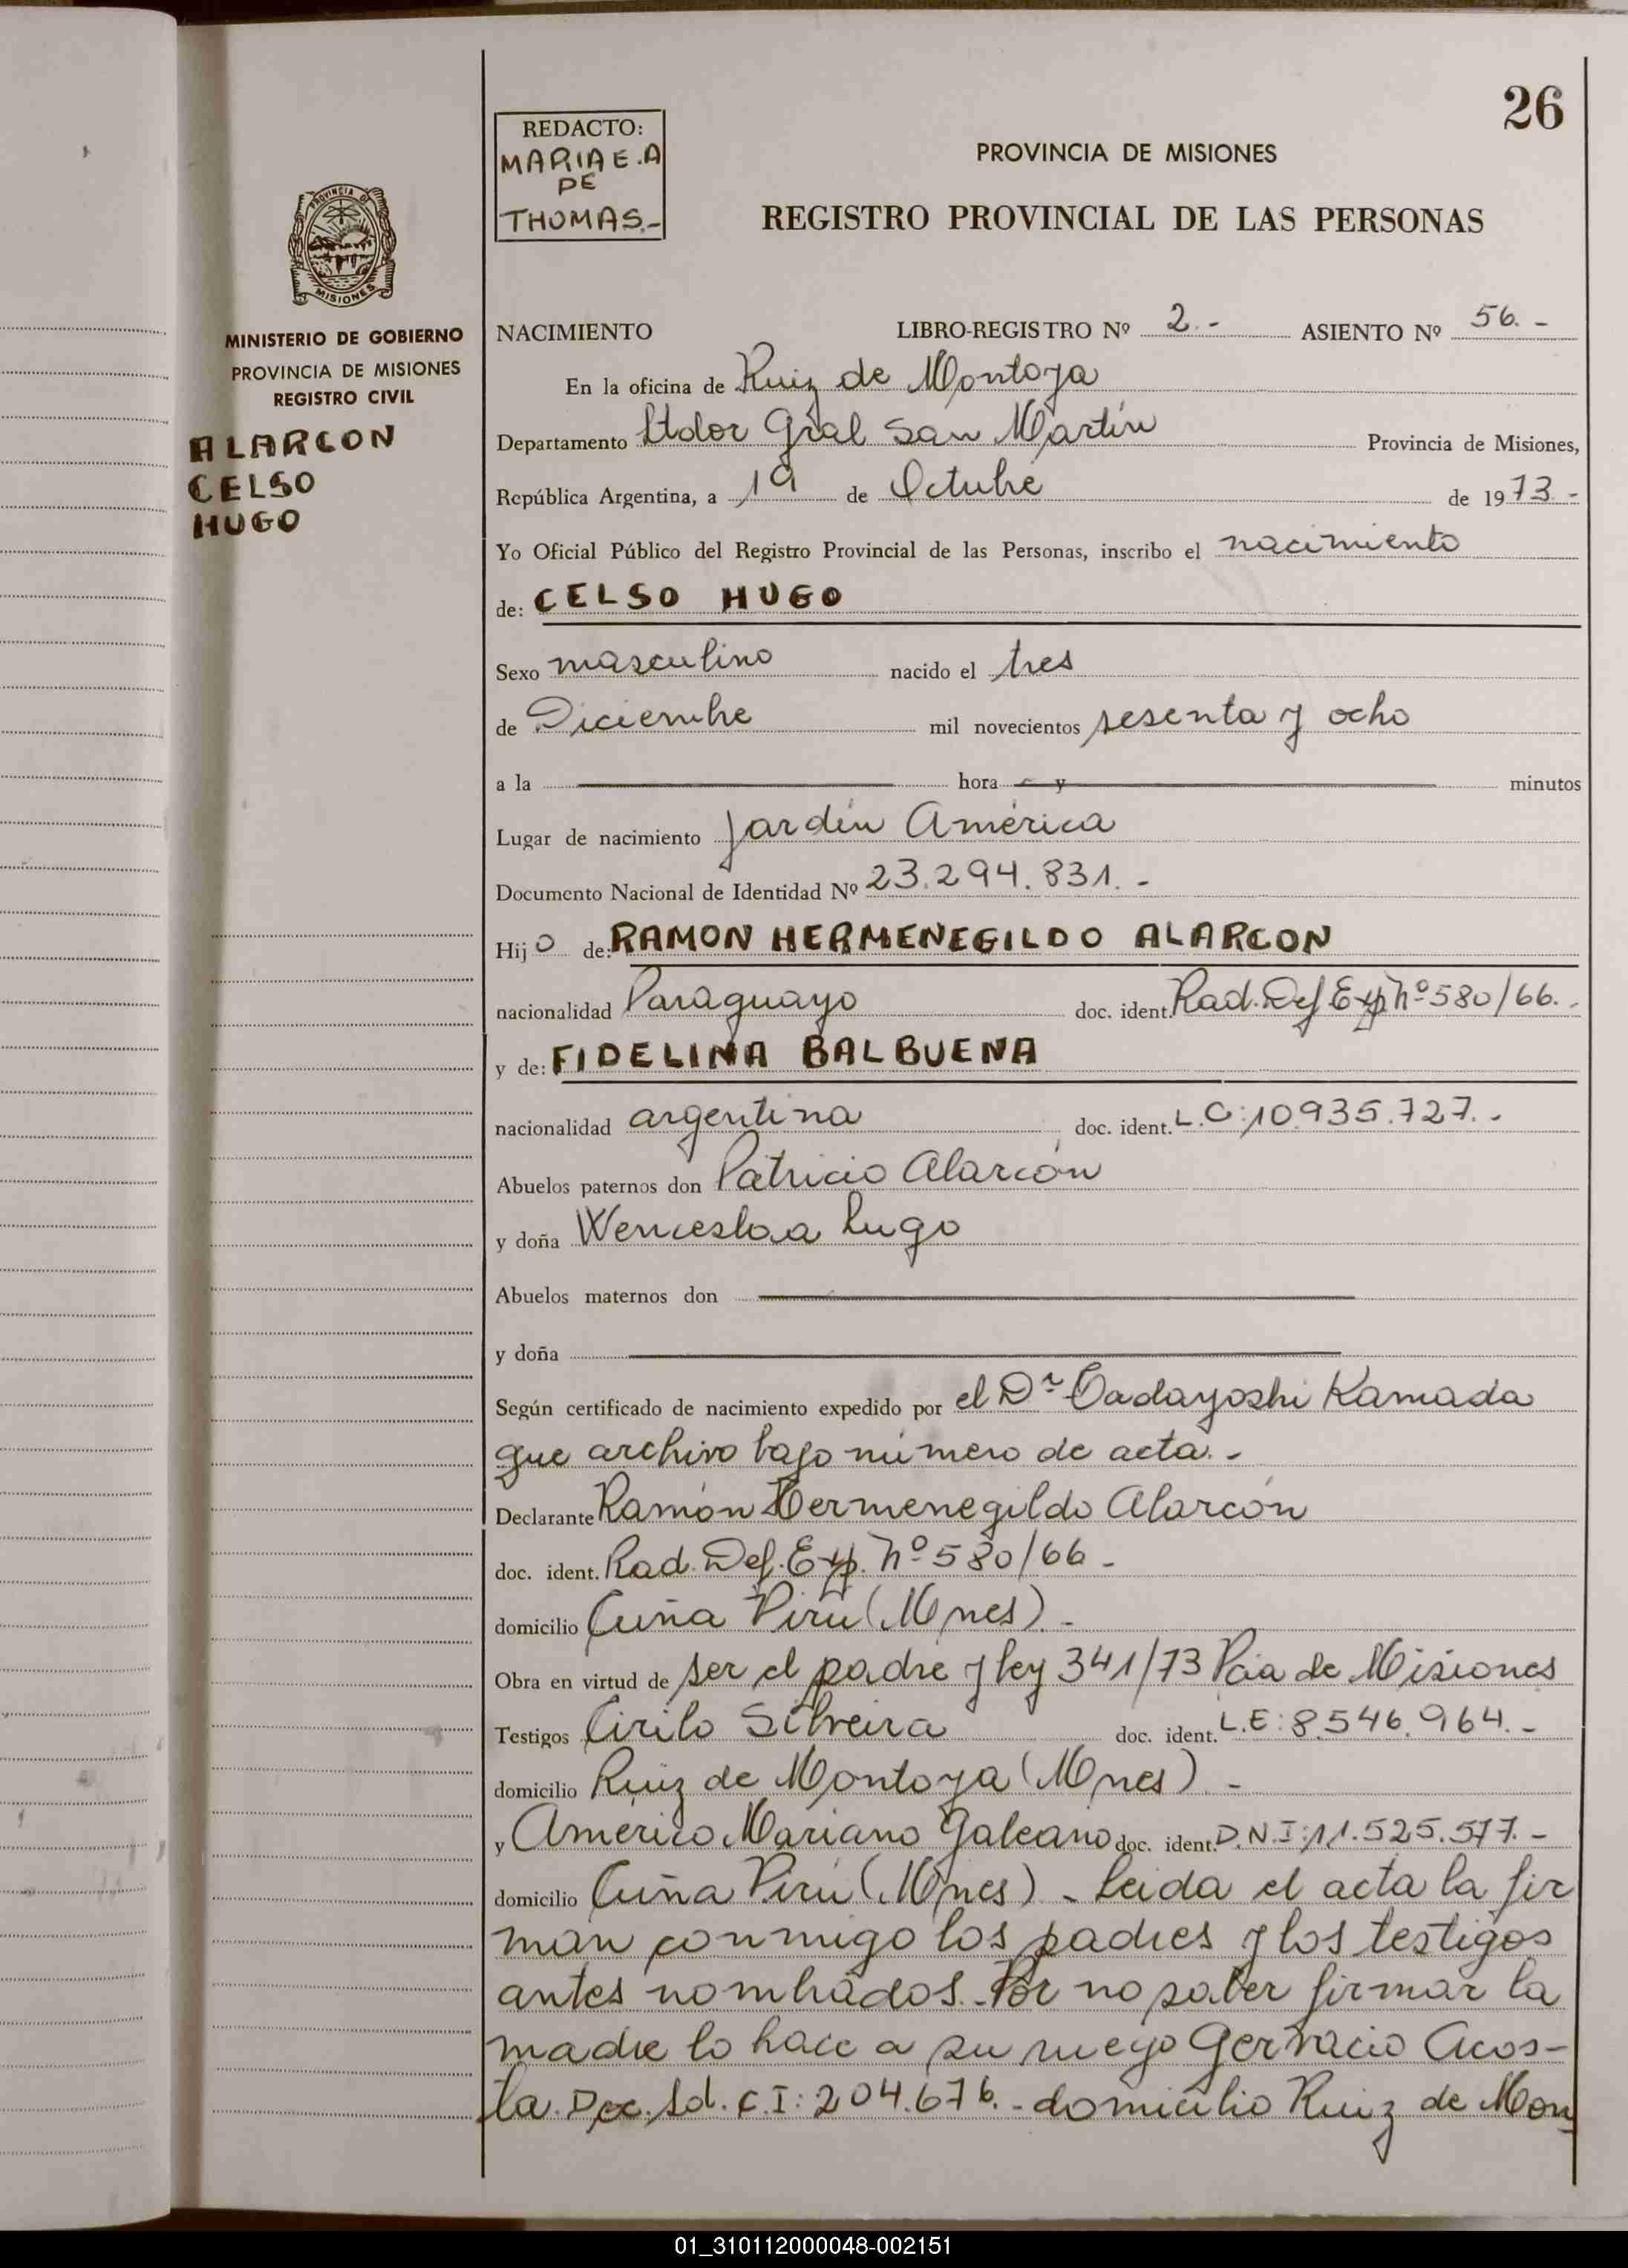 26
REDACTO:
MARIA E.A
DE
THOMAS.-
PROVINCIA DE MISIONES
REGISTRO PROVINCIAL DE LAS PERSONAS
PROVINCIA DE
MISIONES
MINISTERIO DE GOBIERNO
PROVINCIA DE MISIONES
REGISTRO CIVIL
ALARCON
CELSO
HUGO
NACIMIENTO LIBRO-REGISTRO Nº 2.- ASIENTO Nº 56.-
En la oficina de Ruiz de Montoya
Departamento Ltdor Gral San Martín Provincia de Misiones,
República Argentina, a 19 de Octubre de 1973.-
Yo Oficial Público del Registro Provincial de las Personas, inscribo el nacimiento
de: CELSO HUGO
Sexo masculino nacido el tres
de Diciembre mil novecientos sesenta y ocho
a la hora y minutos
Lugar de nacimiento Jardín América
Documento Nacional de Identidad Nº 23.294.831.-
Hijo de: RAMON HERMENEGILDO ALARCON
nacionalidad Paraguayo doc. ident. Rad. Def Exp Nº 580/66.-
y de: FIDELINA BALBUENA
nacionalidad argentina doc. ident. L.C:10.935.727.-
Abuelos paternos don Patricio Alarcón
y doña Wenceslaa Lugo
Abuelos maternos don
y doña
Según certificado de nacimiento expedido por el Dr Tadayoshi Kamada
que archivo bajo número de acta.-
Declarante Ramón Hermenegildo Alarcón
doc. ident. Rad. Def. Exp. Nº 580/66-
domicilio Cuña Pirú (Mnes).-
Obra en virtud de ser el padre y ley 341/73 Pcia de Misiones
Testigos Cirilo Silveira doc. ident. L.E: 8.546.964.-
domicilio Ruiz de Montoya (Mnes).-
y Américo Mariano Galeano doc. ident. D.N.I:11.525.577.-
domicilio Cuña Pirú (Mnes).- Leida el acta la fir
man conmigo los padres y los testigos
antes nombrados.- Por no saber firmar la
madre lo hace a su ruego Gervacio Acos-
ta. Doc. Id. C.I: 204.676.- domicilio Ruiz de Mon
01_310112000048-002151